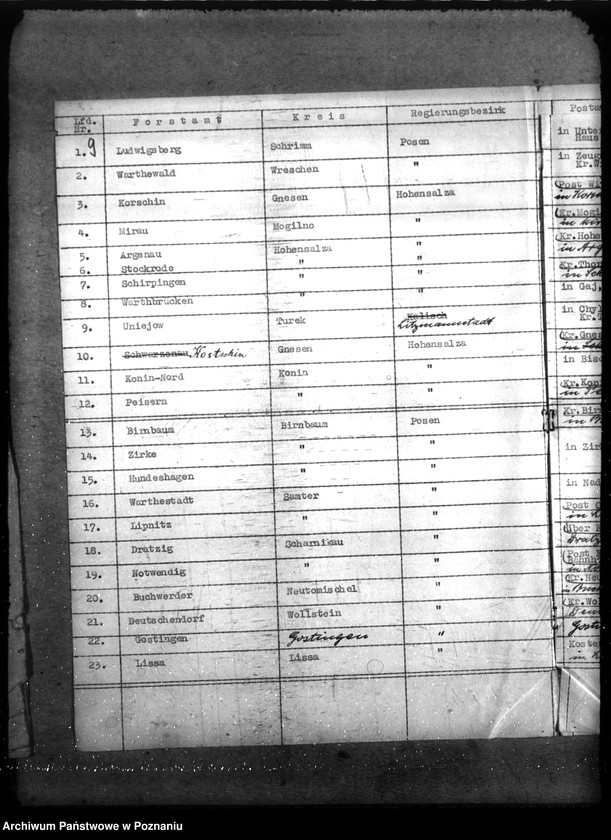 Lfd. Nr. Forstamt Kreis Regierungsbezirk Posta
1. 9 Ludwigsberg Schrimm Posen in Unter Haus
2. Warthewald Wreschen " in Zeug Kr.W
3. Korschin Gnesen Hohensalza (Post Wi in Kors
4. Mirau Mogilno " (Kr.Mogi
5. Argenau Hohensalza " (Kr.Hohe in Arg
6. Stockrode " " (Kr.Thor
7. Schirpingen " " in Gaj,
8. Warthbrücken " "
9. Uniejow Turek Kalisch Litzmannstadt in Chyl Kr.T
10. Schwarzenau Kostschin Gnesen Hohensalza (Kr.Gne
11. Konin-Nord Konin " in Bisc
12. Peisern " " (Kr.Kon
13. Birnbaum Birnbaum Posen (Kr.Bir
14. Zirke " " in Zir
15. Hundeshagen " " in Nad
16. Warthestadt Samter " (Post
17. Lipnitz " " (über
18. Dratzig Scharnikau " Dratz
19. Notwendig " " (Post Bahnh
20. Buchwerder Neutomischel " (Kr.Neu
21. Deutschendorf Wollstein " (Kr.Wol
22. Gostingen Gostingen " Gosti
23. Lissa Lissa " Koste
Archiwum Państwowe w Poznaniu